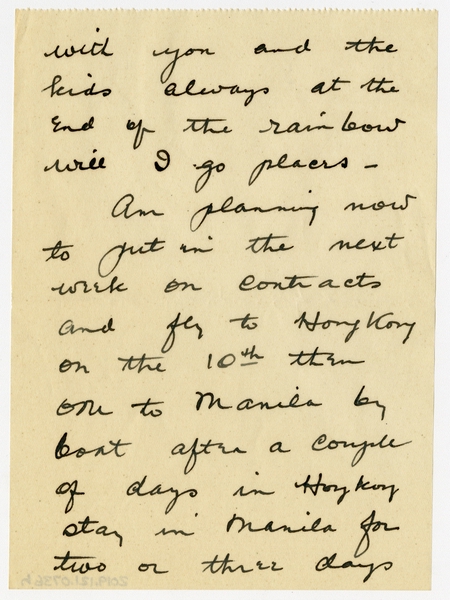 with you and the
kids always at the
end of the rainbow
will I go places –
Am planning now
to put in the next
week on contracts
and fly to Hong Kong
on the 10th then
one to Manila by
boat after a couple
of days in Hong Kong
stay in Manila for
two or three days
2019.121.0736h